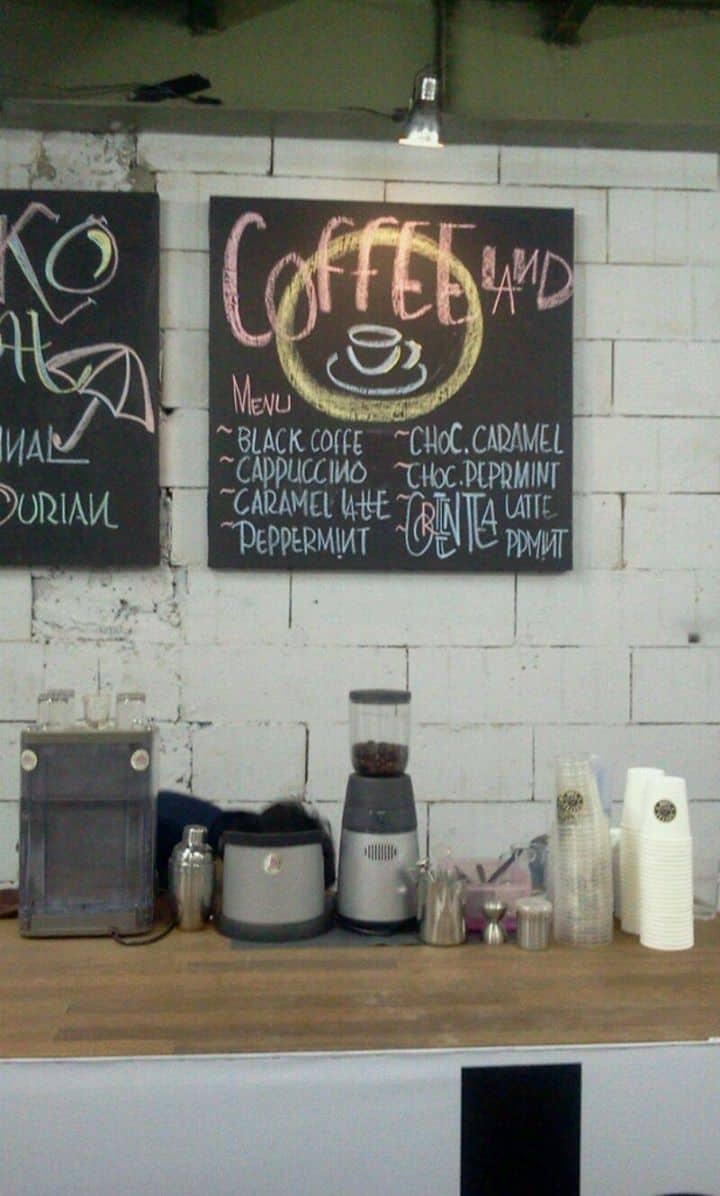 KO
NAL
DURIAN
COFFEE LAND
MENU
~ BLACK COFFE
~ CAPPUCCINO
~ CARAMEL LATTE
~ PEPPERMINT
~ CHOC. CARAMEL
~ CHOC. PEPRMINT
~ GREENTEA LATTE
~ PPMINT